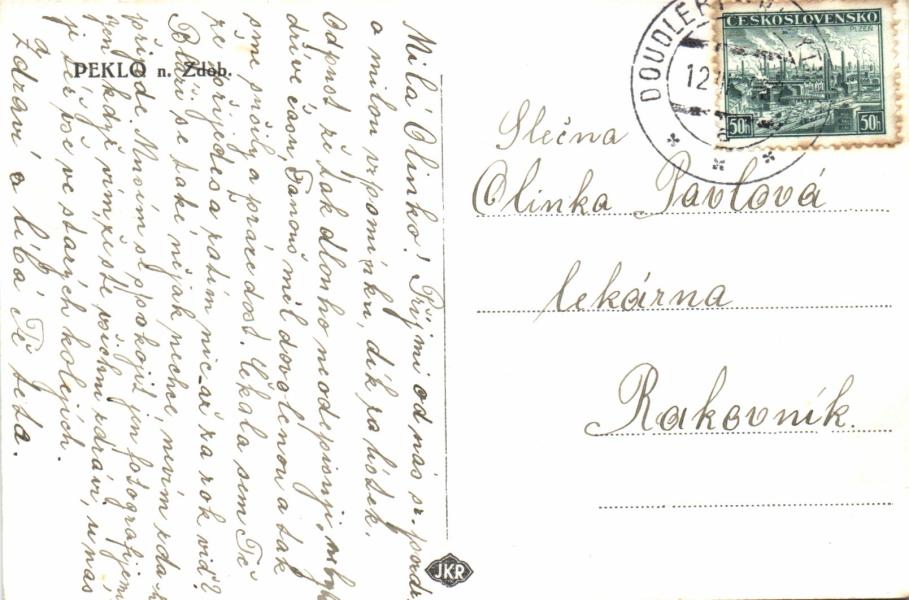 PEKLO n. Zdob.
Milá Olinko! Přijmi od nás sr. pozdr.
a milou vzpomínku, dík za lístek.
Odpusť že tak dlouho neodepisuji, nebylo
dříve času, Fanouš měl dovolenou a tak
sme pušily a práce dost. Čekala sem Tě
že přijedeš a zatím nic až za rok viď?
se také nějak nechce, mním zda-li
přijde. Musím se spokojit jen fotografijemi
jen když vím, že ste všichni zdrávi, u nás
je vše po ve starých kolejích.
Zdraví a líbá Tě teta.
Slečna
Olinka Pavlová
lekárna
Rakovník.
ČESKOSLOVENSKO
PLZEŇ
50h 50h
DOUDLEBY
12
JKR